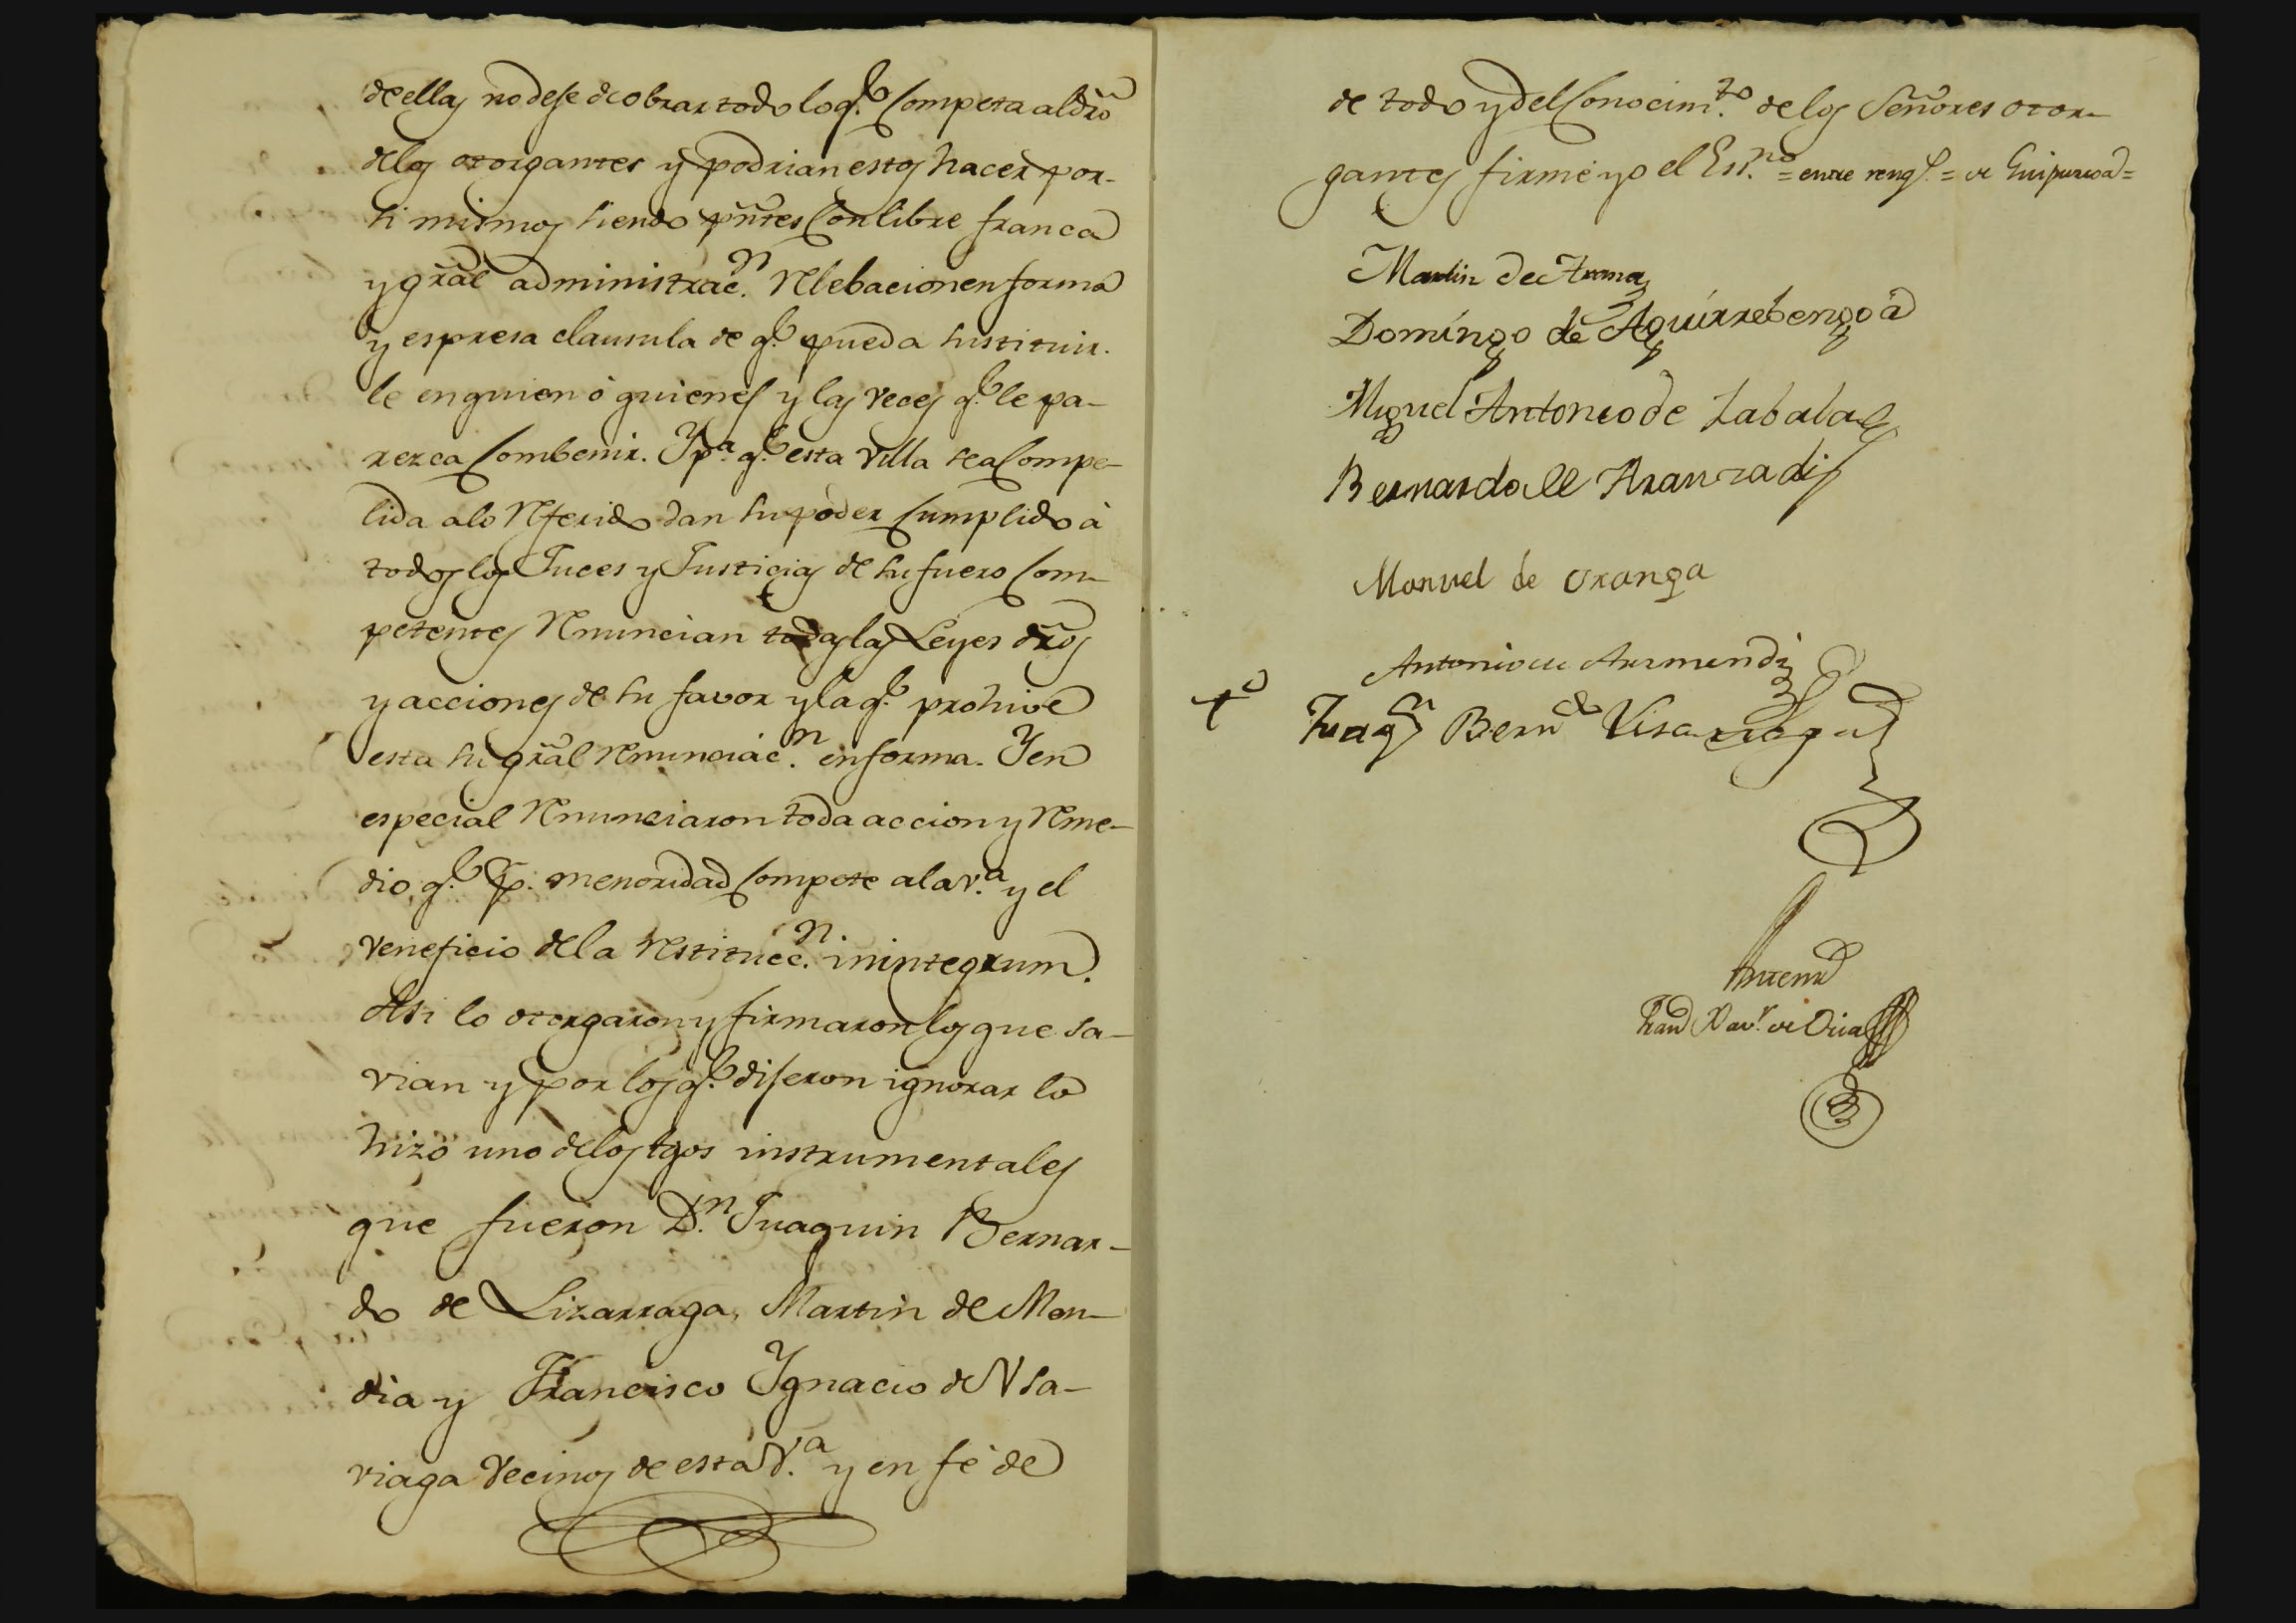 de ellas no dese de obrar todo lo q.e competa al dro
de los otorgantes y podrian estos hacer por
si mismos siendo pntes con libre franca
y gral administrac.n Relebacion en forma
y espresa clausula de q.e pueda sustituir
le en quien ò quienes y las veces q.e le pa-
rezca combenir. Y p.a q.e esta Villa sea compe-
lida a lo Referido dan su poder cumplido à
todos los Juces y Justicias de su fuero com-
petentes Renuncian todas las Leyes dros
y acciones de su favor y la q.e prohive
esta su gral Renunciac.n en forma. Y en
especial Renunciaron toda accion y Reme-
dio q.e p. menoridad compete a la v.a y el
veneficio de la Restitucc.n in integrum.
Asi lo otorgaron y firmaron los que sa-
vian y por los q.e diseron ignorar lo
hizo uno de los tgos instrumentales
que fueron D.n Juaquin Bernar-
do de Lizarraga, Martin de Men-
dia y Francisco Ygnacio de Vsa-
viaga Vecinos de esta V.a y en fé de
de todo y del conocim.to de los Señores otor-
gantes firmé yo el Ess.no = entre rengs. = de Guipuzcoa =
Martin de Arana
Domingo de Aguirrebengoa
Miguel Antonio de Zabala
Bernardo de Aranzadi
Manuel de Oranga
Antonio de Aurmendi
t.o Juaq.n Bern.do Lisarraga
Antemi
Fran.co Xav.r de Oria